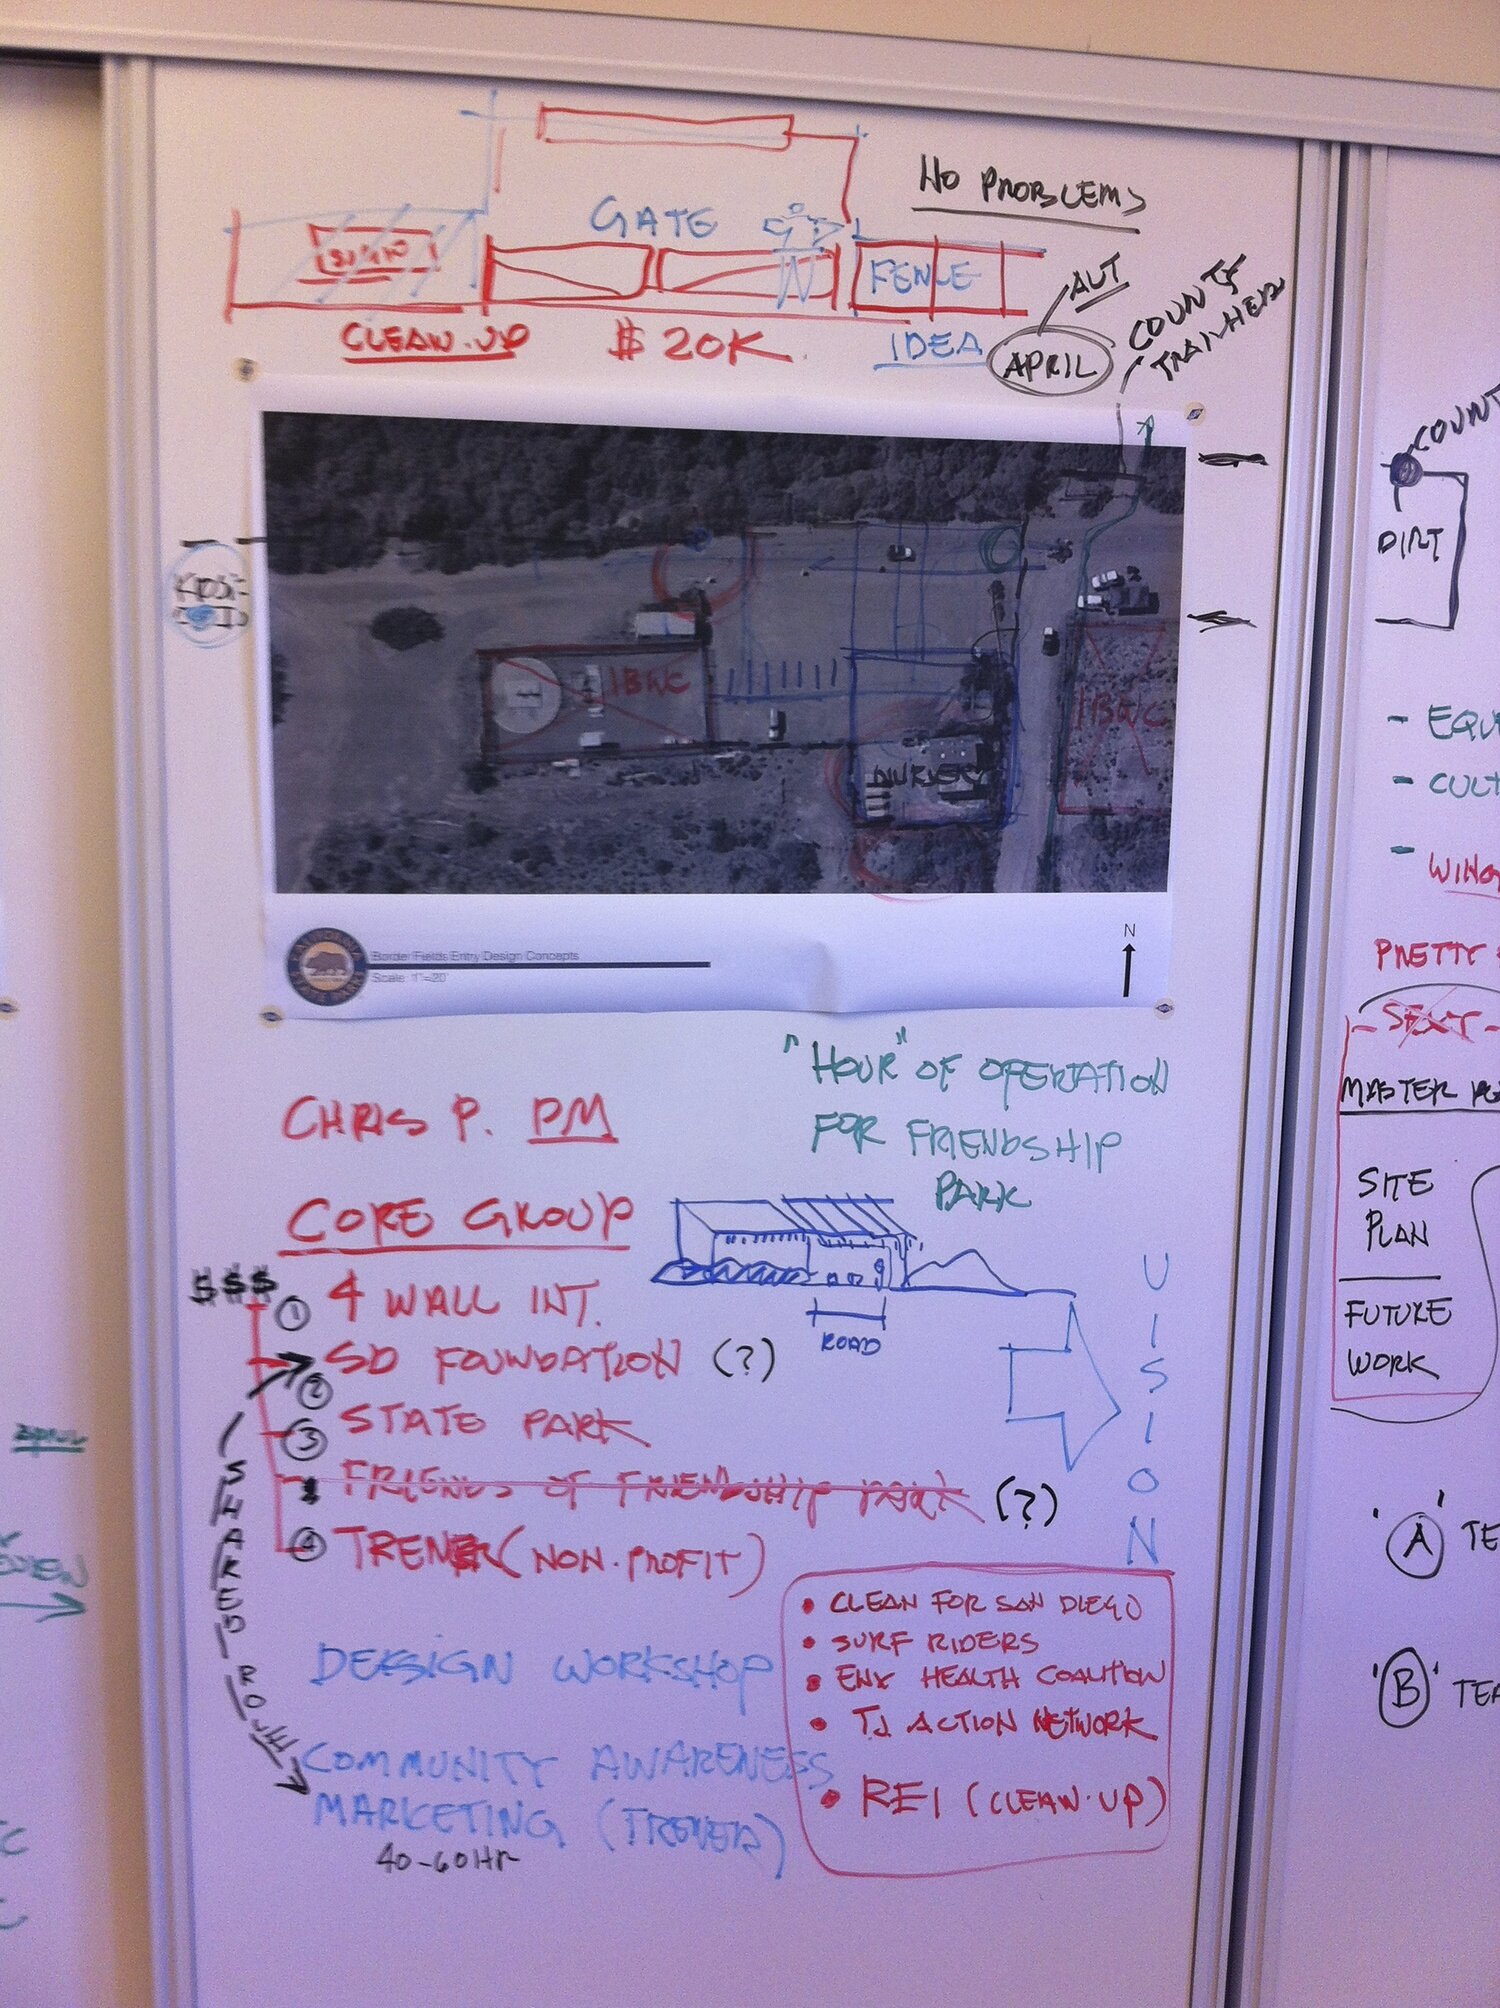 NO PROBLEMS
GATE
SIGN
FENCE
CLEAN-UP
$20K.
IDEA
APRIL
AUT
COUNTY
COUNT
DIRT
IBWC
IBWC
NURSERY
N
Border Fields Entry Design Concepts
Scale: 1"=20'
CALIFORNIA
"HOUR" OF OPERTATION
FOR FRIENDSHIP
PARK
CHRIS P. PM
CORE GROUP
$$$
① 4 WALL INT.
② SD FOUNDATION (?)
③ STATE PARK
FRIENDS OF FRIENDSHIP PARK (?)
④ TRENER (NON-PROFIT)
ROAD
VISION
SHARED ROLE
DESIGN WORKSHOP
COMMUNITY AWARENESS
MARKETING (TRENER)
40-60 HR
• CLEAN FOR SAN DIEGO
• SURF RIDERS
• ENV HEALTH COALITION
• TJ ACTION NETWORK
• REI (CLEAN-UP)
- EQU
- CULT
- WING
PRETTY
- SEXY -
MASTER
SITE
PLAN
FUTURE
WORK
'A' TE
'B' TEA
APRIL